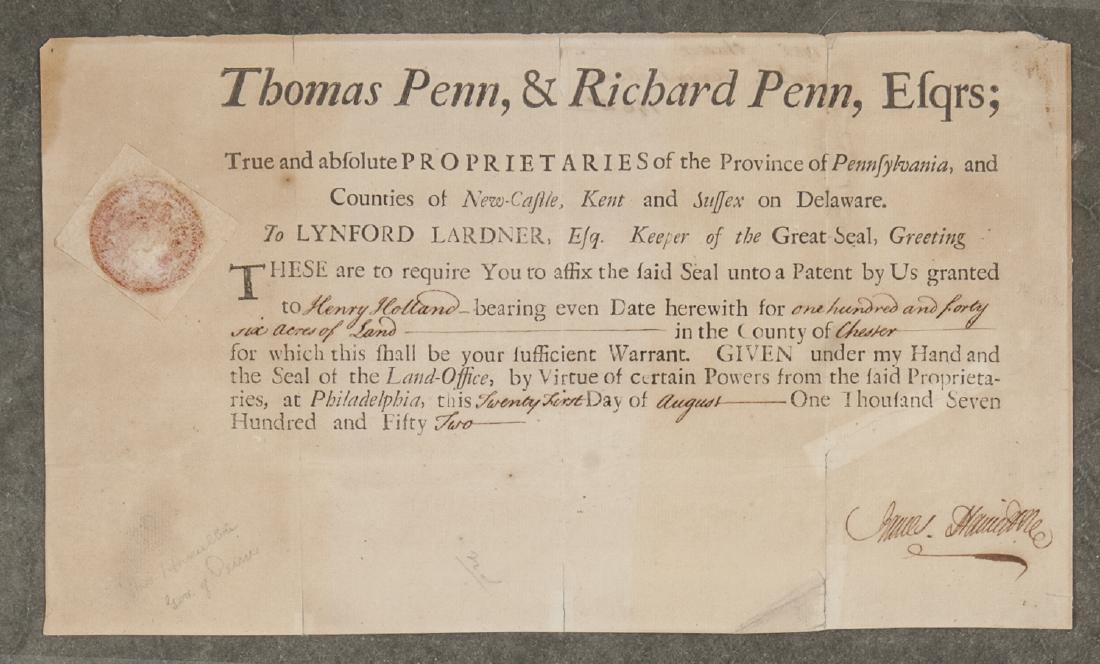 Thomas Penn, & Richard Penn, Eſqrs;
True and abſolute PROPRIETARIES of the Province of Pennſylvania, and
Counties of New-Caſtle, Kent and Suſſex on Delaware.
To LYNFORD LARDNER, Eſq. Keeper of the Great-Seal, Greeting
THESE are to require You to affix the ſaid Seal unto a Patent by Us granted
to Henry Holland bearing even Date herewith for one hundred and forty
six acres of Land in the County of Chester
for which this ſhall be your ſufficient Warrant. GIVEN under my Hand and
the Seal of the Land-Office, by Virtue of certain Powers from the ſaid Proprieta-
ries, at Philadelphia, this Twenty First Day of August One Thouſand Seven
Hundred and Fifty Two
James Hamilton
Hamilton
Gov. of Penn